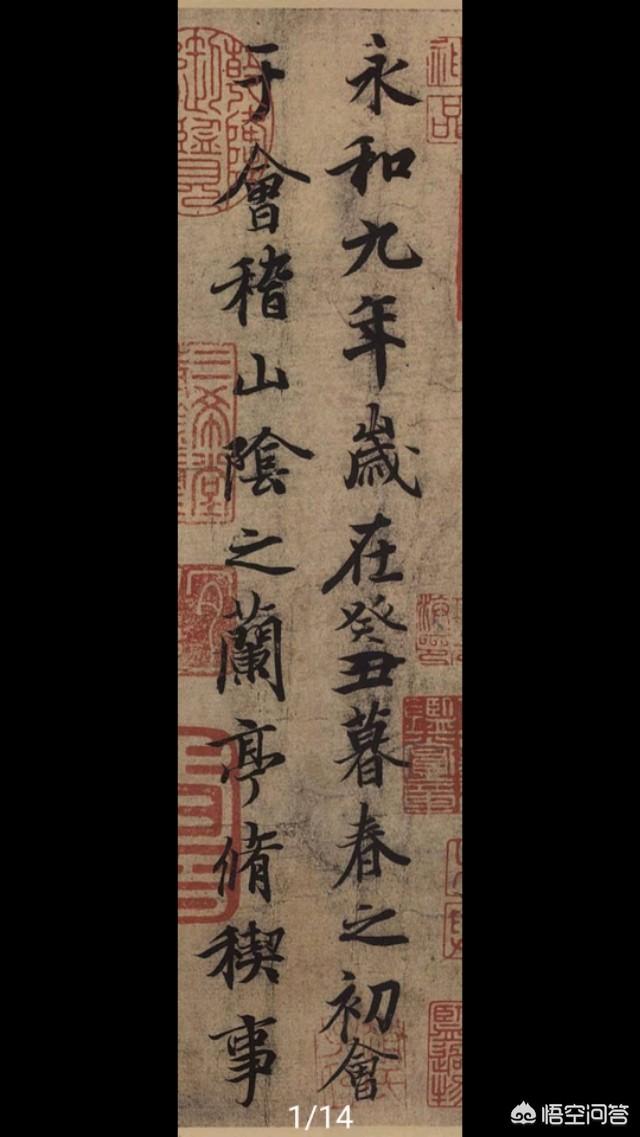 永和九年歲在癸丑暮春之初會
于會稽山陰之蘭亭脩稧事
三希堂
1/14
悟空问答